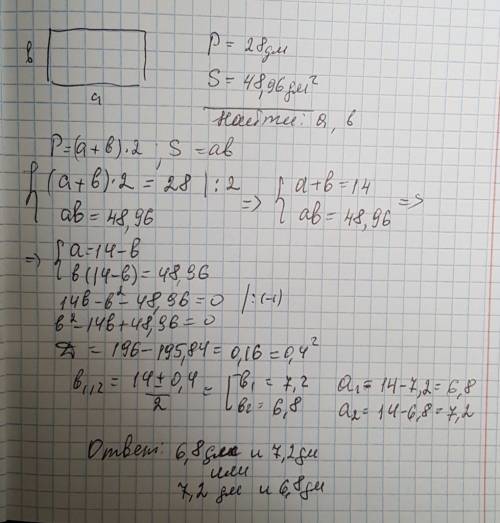 в
a
P = 28дм
S = 48,96 дм²
Найти: a, в
P=(a+в)·2 ; S =ab
{(a+в)·2 = 28 |:2
aв = 48,96
=> {a+в=14
aв = 48,96 =>
=> {a=14-в
в(14-в)=48,96
14в-в²-48,96=0 /:(-1)
в²-14в+48,96=0
Д = 196-195,84=0,16=0,4²
в₁,₂ = 14±0,4/2 = [в₁ = 7,2 a₁=14-7,2=6,8
в₂= 6,8 a₂=14-6,8=7,2
Ответ: 6,8дм и 7,2дм
или
7,2 дм и 6,8дм